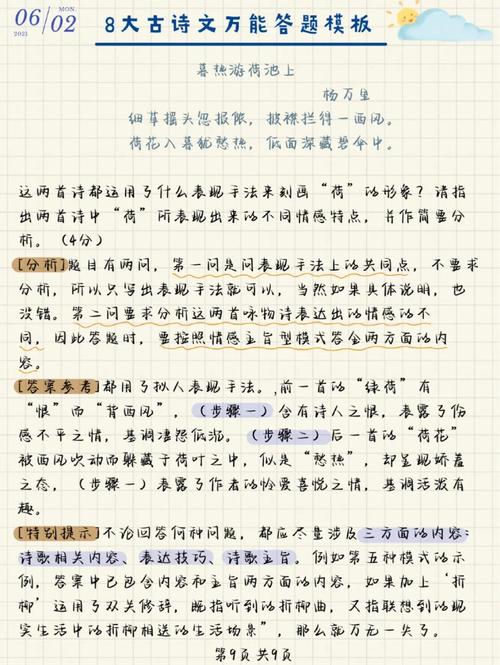 06/02
MON.
2021
8大古诗文万能答题模板
暮热游荷池上
杨万里
细草摇头忽报侬，披襟拦得一西风。
荷花入暮犹愁热，低面深藏碧伞中。
这两首诗都运用了什么表现手法来刻画“荷”的形象？请指
出两首诗中“荷”所表现出来的不同情感特点，并作简要分
析。（4分）
[分析]题目有两问，第一问是问表现手法上的共同点，不要求
分析，所以只写出表现手法就可以，当然如果具体说明，也
没错。第二问要求分析这两首咏物诗表达出的情感的不
同，因此答题时，要按照情感主旨型模式答全两方面的内
容。
[答案参考]都用了拟人表现手法。,前一首的“绿荷”有
“恨”而“背西风”，（步骤一）含有诗人之恨，表露了伤
感不平之情，基调凄怨低沉。（步骤二）后一首的“荷花”
被西风吹动而躲藏于荷叶之中，似是“愁热”，却呈现娇羞
之态，（步骤一）表露了作者的怜爱喜悦之情，基调活泼有
趣。
[特别提示]不论回答何种问题，都应尽量涉及三方面的内容：
诗歌相关内容、表达技巧、诗歌主旨。例如第五种模式的示
例，答案中已包含内容和主旨两方面的内容，如果加上‘折
柳’运用了双关修辞，既指听到的折柳曲，又指联想到的现
实生活中的折柳相送的生活场景”，那么就万无一失了。
第9页 共9页